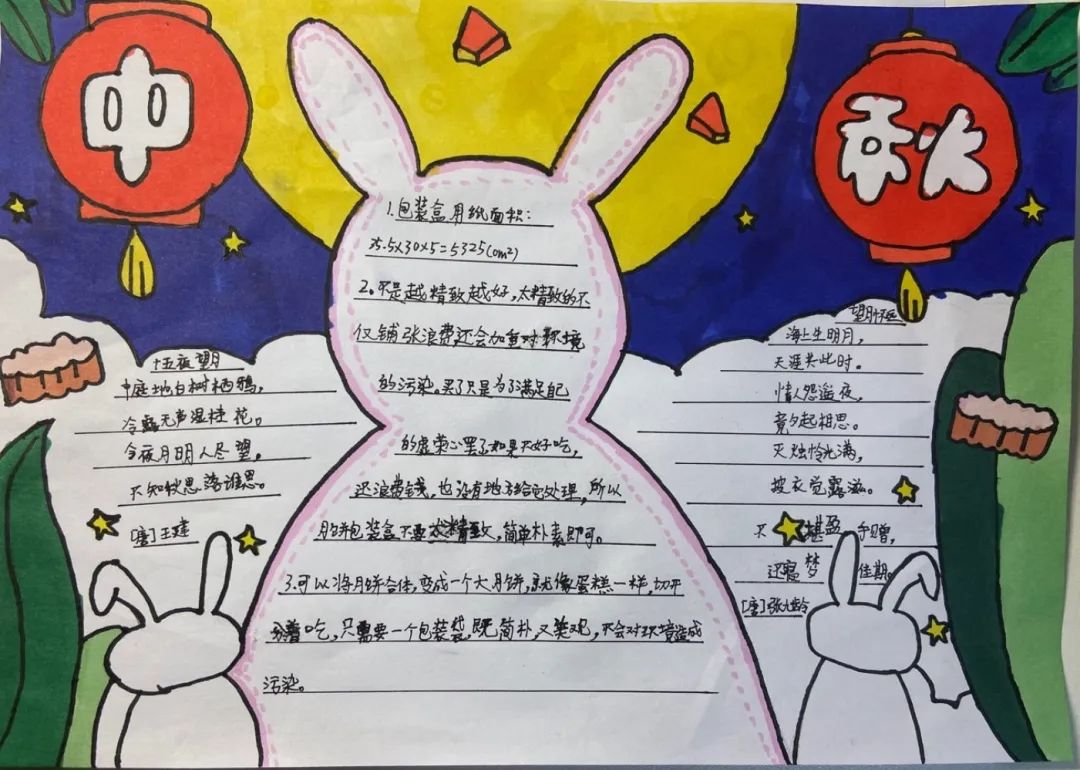 中
秋
1.包装盒用纸面积：
35.5x30x5=5325(cm²)
2.不是越精致越好，太精致的不
仅铺张浪费还会加重对环境
的污染。买了只是为了满足自己
的虚荣心罢了如果不好吃，
还浪费钱，也没有地方给它处理，所以
月饼包装盒不要太精致，简单朴素即可。
3.可以将月饼合体，变成一个大月饼，就像蛋糕一样，切开
分着吃，只需要一个包装袋，既简朴又美观，不会对环境造成
污染。
十五夜望月
中庭地白树栖鸦，
冷露无声湿桂花。
今夜月明人尽望，
不知秋思落谁思。
[唐]王建
望月怀远
海上生明月，
天涯共此时。
情人怨遥夜，
竟夕起相思。
灭烛怜光满，
披衣觉露滋。
不堪盈手赠，
还寝梦佳期。
[唐]张九龄